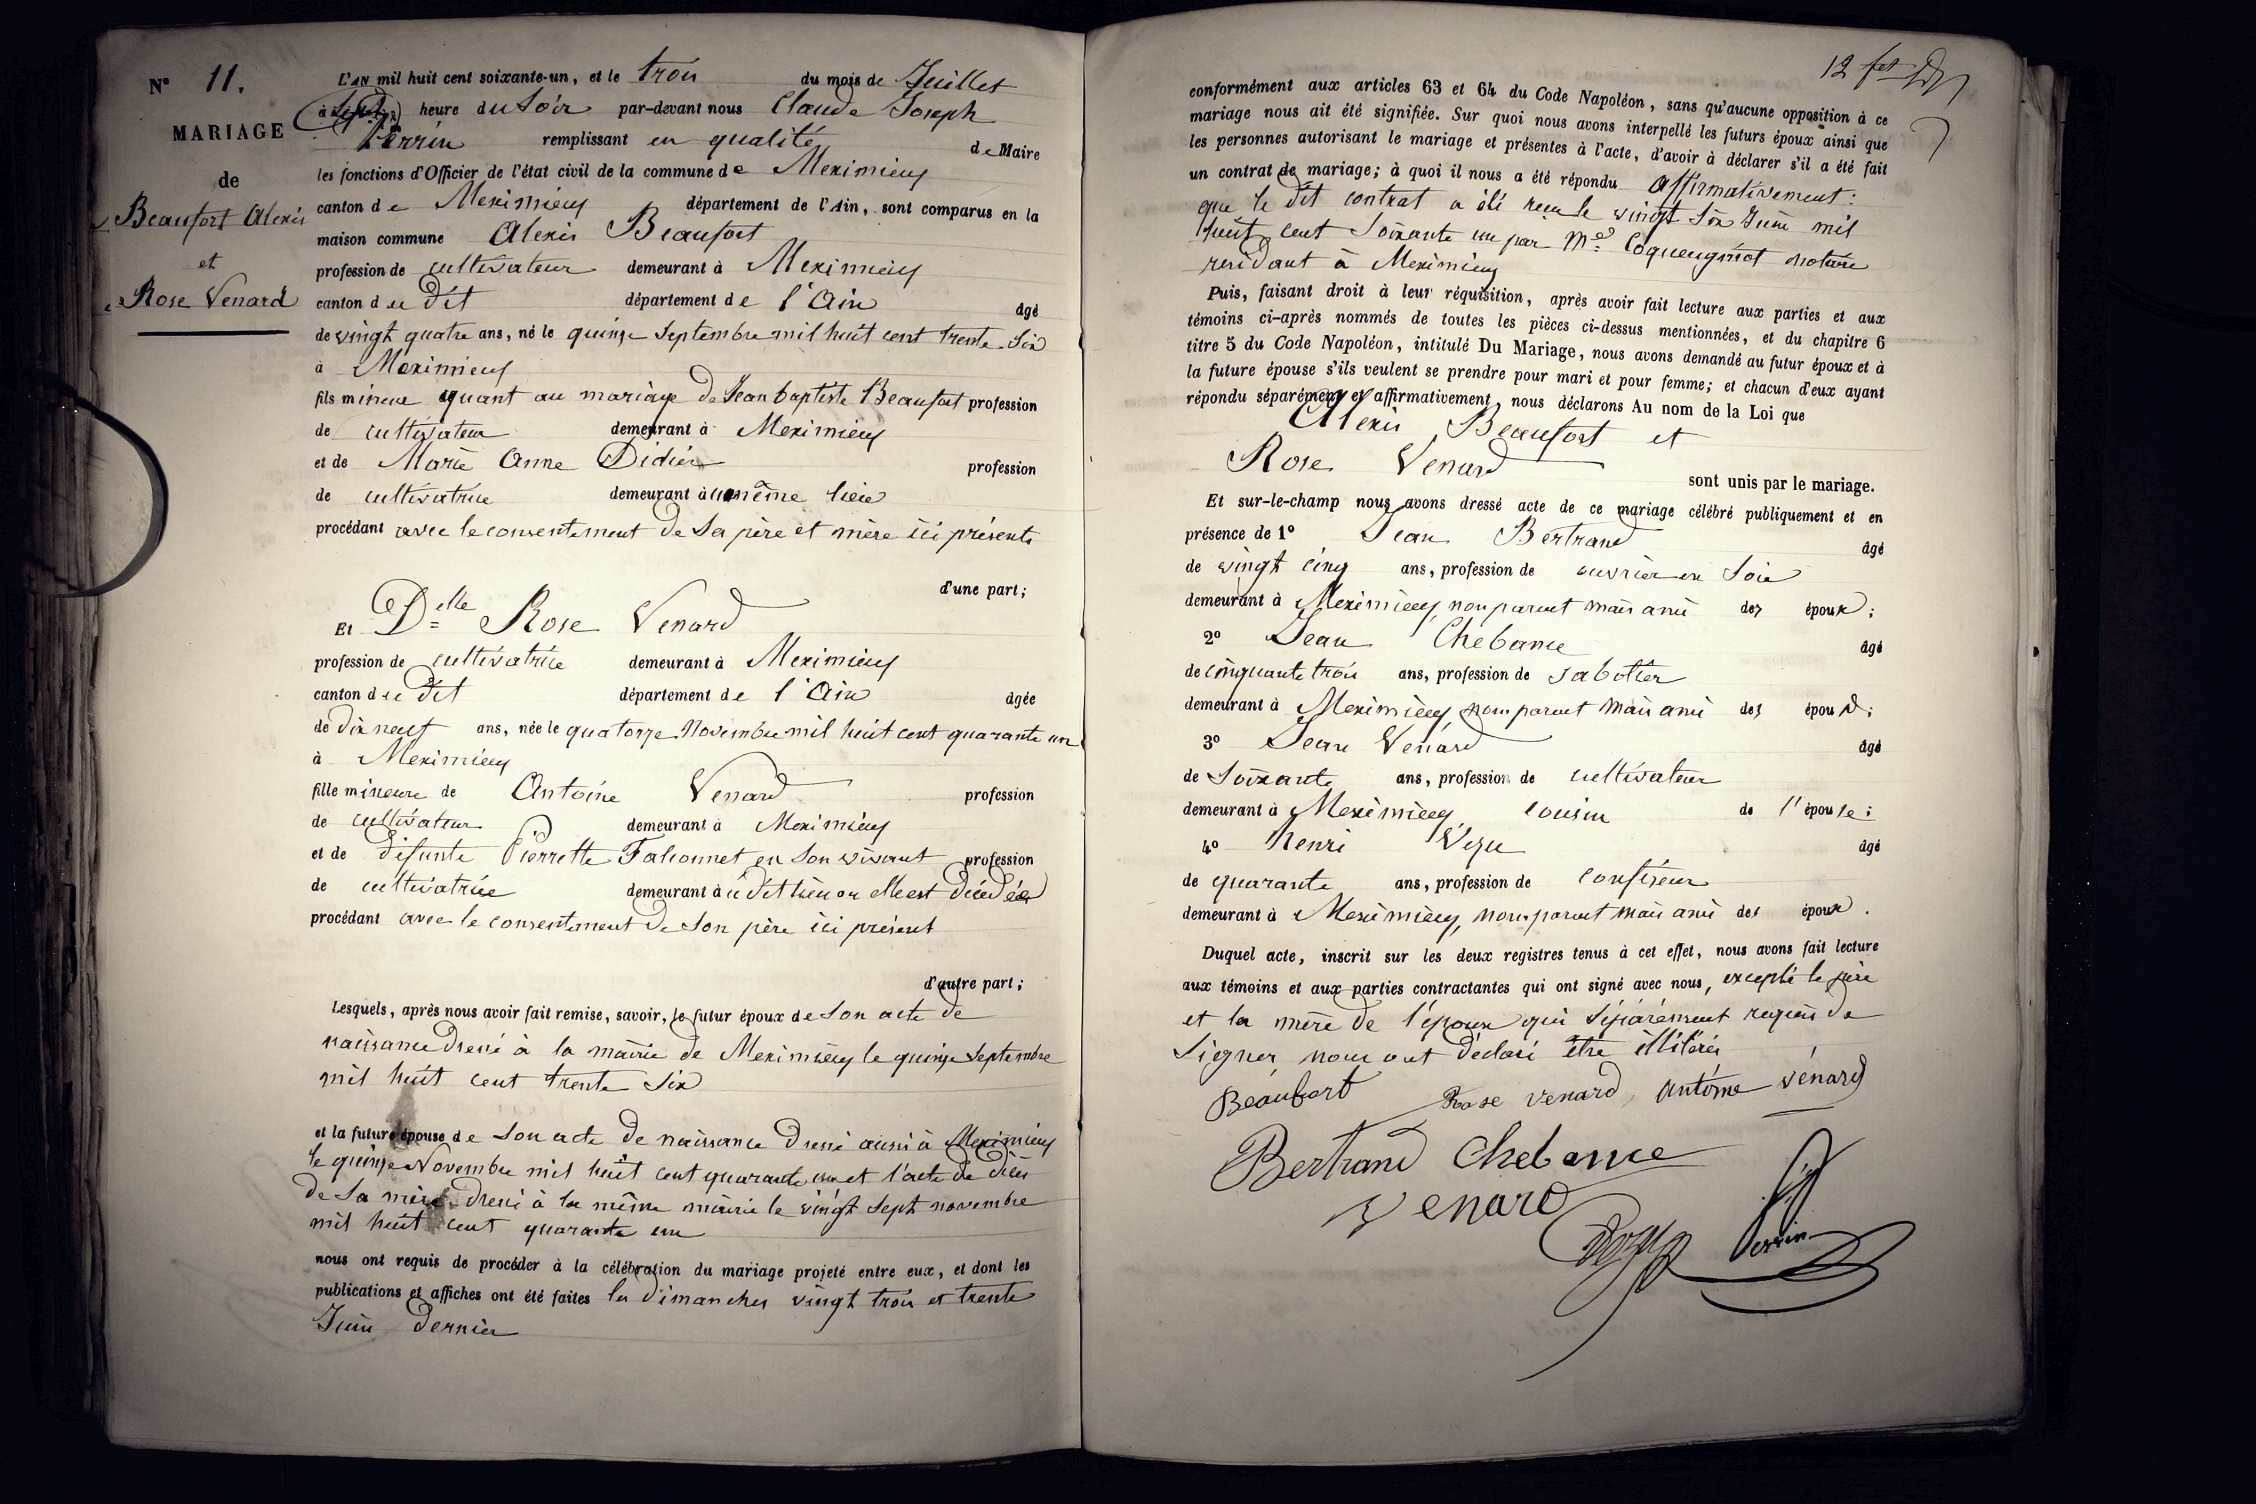 N° 11.
MARIAGE
de
Beaufort Alexis
et
Rose Venard
L'AN mil huit cent soixante-un, et le trois du mois de Juillet
à Sept heure du Soir par-devant nous Claude Joseph
Perrin remplissant en qualité de Maire
les fonctions d'Officier de l'état civil de la commune de Meximieux
canton de Meximieux département de l'Ain, sont comparus en la
maison commune Alexis Beaufort
profession de cultivateur demeurant à Meximieux
canton du dit département de l'Ain âgé
de vingt quatre ans, né le quinze Septembre mil huit cent trente Six
à Meximieux
fils mineur quant au mariage de Jean baptiste Beaufort profession
de cultivateur demeurant à Meximieux
et de Marie Anne Didier profession
de cultivatrice demeurant à même lieu
procédant avec le consentement de Ses père et mère ici présents
d'une part;
Et Delle Rose Venard
profession de cultivatrice demeurant à Meximieux
canton du dit département de l'Ain âgée
de dix neuf ans, née le quatorze Novembre mil huit cent quarante un
à Meximieux
fille mineure de Antoine Venard profession
de cultivateur demeurant à Meximieux
et de défunte Pierrette Falconnet en Son vivant profession
de cultivatrice demeurant à u dit lieu ou elle est décédée
procédant avec le consentement de Son père ici présent
d'autre part;
Lesquels, après nous avoir fait remise, savoir, le futur époux de Son acte de
naissance dressé à la mairie de Meximieux le quinze Septembre
mil huit cent trente Six
et la future épouse de Son acte de naissance dressé aussi à Meximieux
le quinze Novembre mil huit cent quarante un et l'acte de décès
de Sa mère dressé à la même mairie le vingt Sept novembre
mil huit cent quarante un
nous ont requis de procéder à la célébration du mariage projeté entre eux, et dont les
publications et affiches ont été faites les dimanches vingt trois et trente
Juin dernier
12
conformément aux articles 63 et 64 du Code Napoléon, sans qu'aucune opposition à ce
mariage nous ait été signifiée. Sur quoi nous avons interpellé les futurs époux ainsi que
les personnes autorisant le mariage et présentes à l'acte, d'avoir à déclarer s'il a été fait
un contrat de mariage; à quoi il nous a été répondu affirmativement:
que le dit contrat a été reçu le vingt Six Juin mil
huit cent Soixante un par Me Coqueugniot notaire
residant à Meximieux
Puis, faisant droit à leur réquisition, après avoir fait lecture aux parties et aux
témoins ci-après nommés de toutes les pièces ci-dessus mentionnées, et du chapitre 6
titre 5 du Code Napoléon, intitulé Du Mariage, nous avons demandé au futur époux et à
la future épouse s'ils veulent se prendre pour mari et pour femme; et chacun d'eux ayant
répondu séparément et affirmativement, nous déclarons Au nom de la Loi que
Alexis Beaufort et
Rose Venard
sont unis par le mariage.
Et sur-le-champ nous avons dressé acte de ce mariage célébré publiquement et en
présence de 1° Jean Bertrand âgé
de vingt cinq ans, profession de ouvrier en Soie
demeurant à Meximieux, non parent mais ami des époux;
2° Jean Chebance âgé
de cinquante trois ans, profession de Sabotier
demeurant à Meximieux, non parent mais ami des époux;
3° Jean Venard âgé
de Soixante ans, profession de cultivateur
demeurant à Meximieux cousin de l'épouse;
4° Henri Vezu âgé
de quarante ans, profession de confiseur
demeurant à Meximieux, non parent mais ami des époux.
Duquel acte, inscrit sur les deux registres tenus à cet effet, nous avons fait lecture
aux témoins et aux parties contractantes qui ont signé avec nous, excepté le père
et la mère de l'époux qui Séparément requis de
Signer nous ont déclaré être illitérés
Beaufort Rose venard, antoine vénard
Bertrand Chebance
Venard
Vezu Perrin